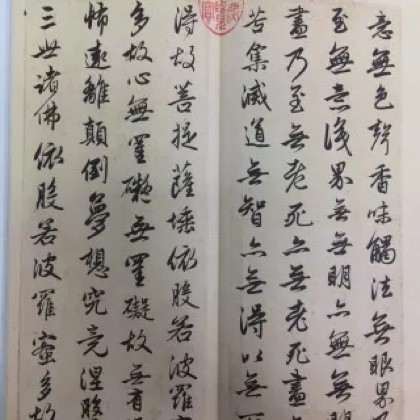 意無色聲香味觸法無眼界
至無意識界無無明亦無無明
盡乃至無老死亦無老死盡
苦集滅道無智亦無得以無
得故菩提薩埵依般若波羅
多故心無罣礙無罣礙故無有
怖遠離顛倒夢想究竟涅槃
三世諸佛依般若波羅蜜多故